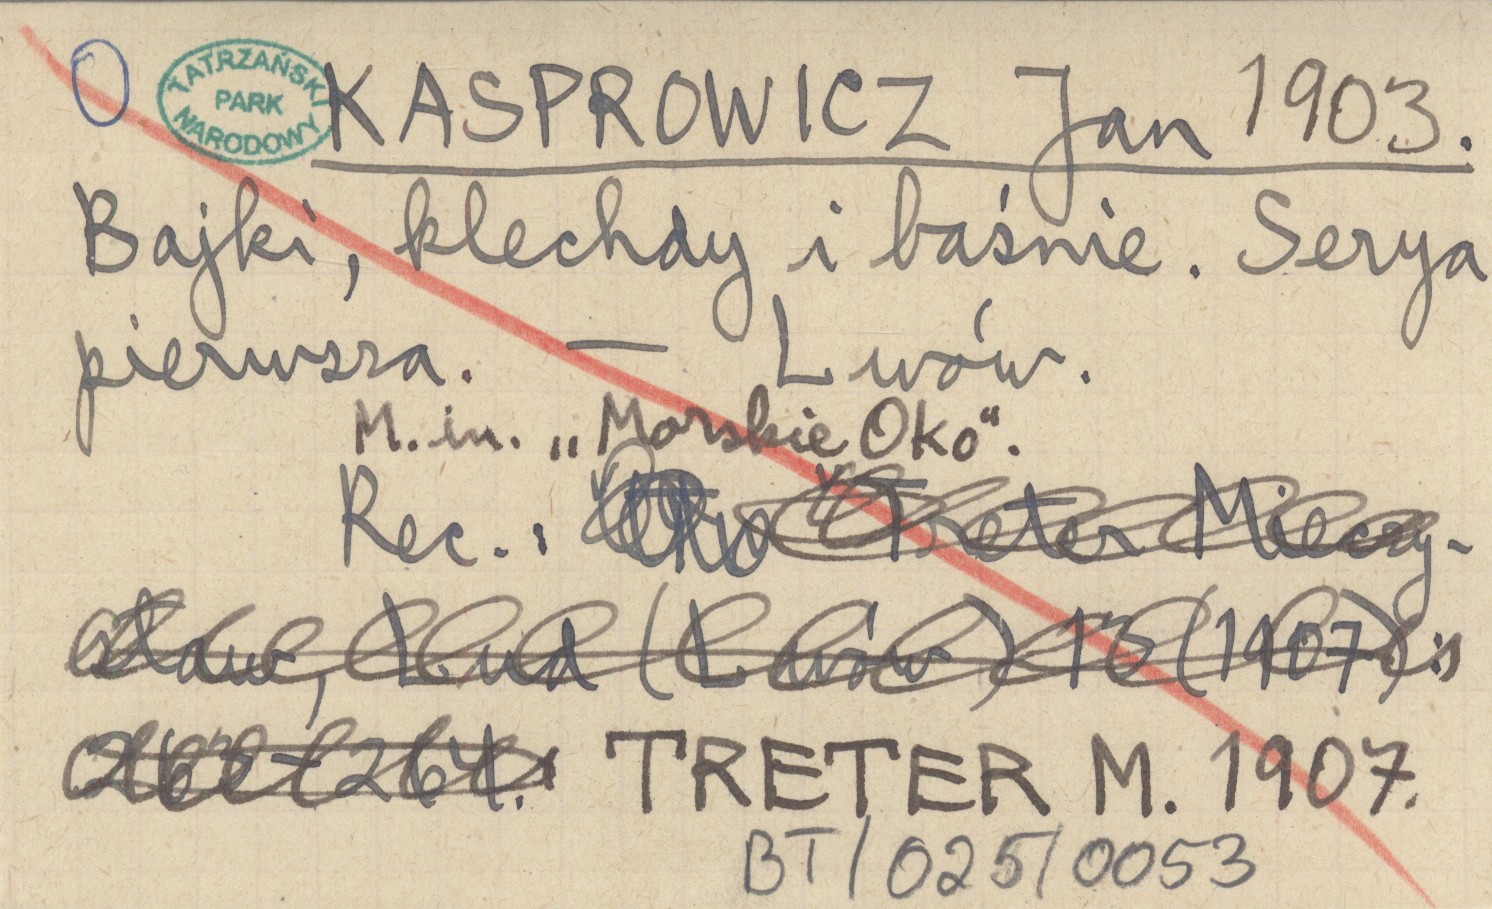 TATRZAŃSKI PARK NARODOWY
KASPROWICZ Jan 1903.
Bajki, klechdy i baśnie. Serya
pierwsza. — Lwów.
M. in. „Morskie Oko".
Rec.: Treter Mieczy-
sław, Lud (Lwów) 13 (1907):
263-264. TRETER M. 1907.
BT/025/0053